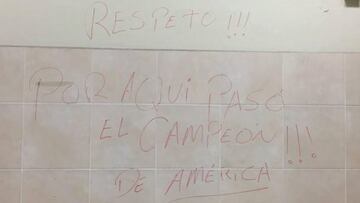 RESPETO!!!
POR AQUI PASO
EL CAMPEON!!!
DE AMÉRICA